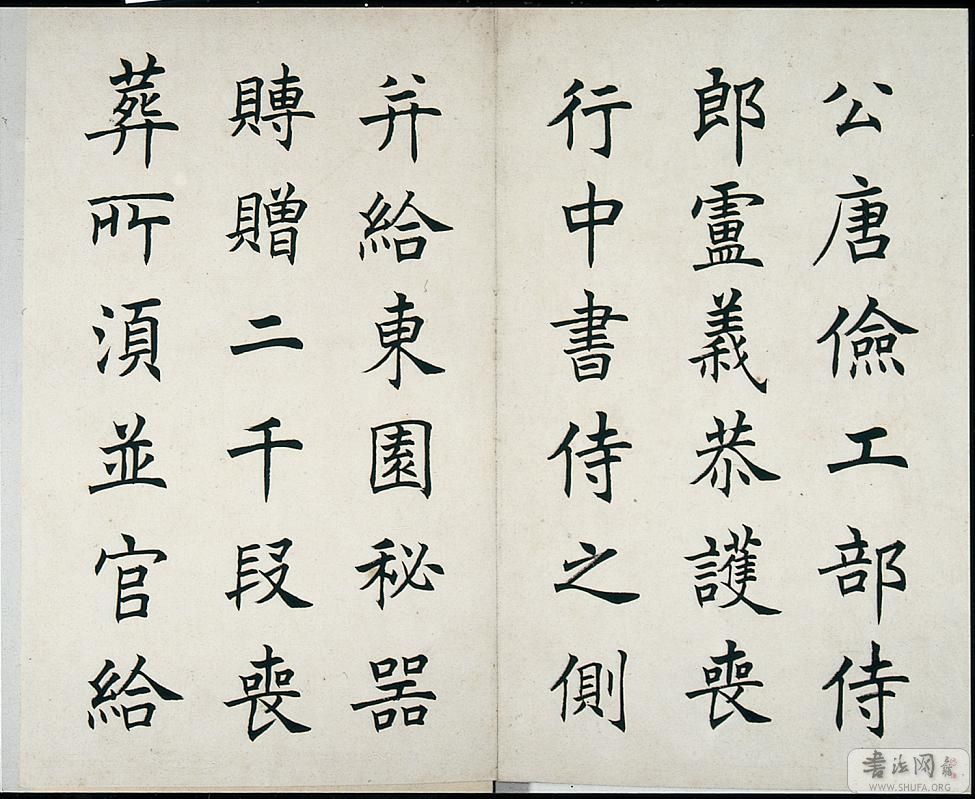 公唐儉工部侍
郎盧義恭護喪
行中書侍之側
并給東園秘器
賻贈二千段喪
葬所須並官給
书法网
WWW.SHUFA.ORG